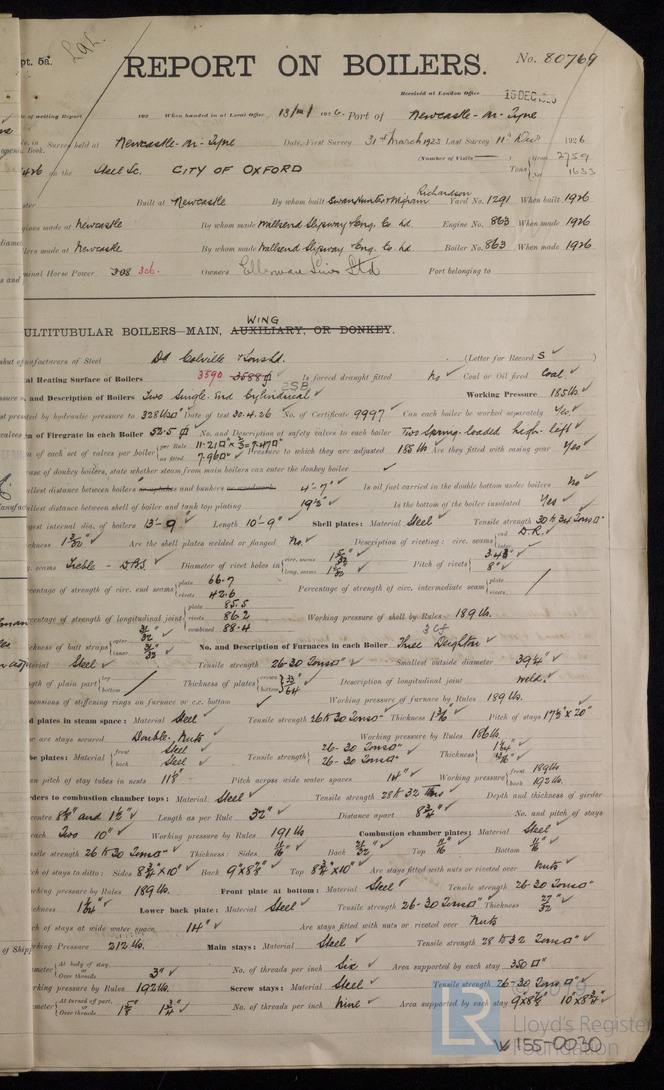 pt. 5a.
REPORT ON BOILERS.
No. 80769
Received at London Office 15 DEC 19
e of writing Report 192 When handed in at Local Office 13/11/ 1926. Port of Newcastle-on-Tyne
Survey held at Newcastle-on-Tyne Date, First Survey 31st March 1925 Last Survey 11th Dec 1926
(Number of Visits )
on the Steel Sc. CITY OF OXFORD Tons Gross 2759 Net 1633
Built at Newcastle By whom built Swan Hunter & Wigham Richardson Yard No. 1291 When built 1926
gines made at Newcastle By whom made Wallsend Slipway & Eng. Co. Ld. Engine No. 863 When made 1926
lers made at Newcastle By whom made Wallsend Slipway & Eng. Co. Ld. Boiler No. 863 When made 1926
minal Horse Power 308 306. Owners Ellerman Lines Ltd Port belonging to
ULTITUBULAR BOILERS—MAIN, WING AUXILIARY, OR DONKEY.
nufacturers of Steel Dd Colville & Sons Ld. (Letter for Record S )
al Heating Surface of Boilers 3590 3588 Is forced draught fitted No Coal or Oil fired Coal.
2SB
and Description of Boilers Two Single-End Cylindrical Working Pressure 185 lb
ted by hydraulic pressure to 328 lbs Date of test 30.4.26 No. of Certificate 9997 Can each boiler be worked separately Yes.
of Firegrate in each Boiler 52.5 No. and Description of safety valves to each boiler Two Spring-loaded high-lift
of each set of valves per boiler per Rule 11.21 × 2/3 = 7.47 as fitted 7.96 Pressure to which they are adjusted 185 lb Are they fitted with easing gear Yes
ase of donkey boilers, state whether steam from main boilers can enter the donkey boiler
llest distance between boilers or uptakes and bunkers or woodwork 4'-7" Is oil fuel carried in the double bottom under boilers No
llest distance between shell of boiler and tank top plating 19½" Is the bottom of the boiler insulated Yes
gest internal dia. of boilers 13'-9 Length 10'-9" Shell plates: Material Steel Tensile strength 30 to 34 Tons
ckness 1 3/32" Are the shell plates welded or flanged No. Description of riveting: circ. seams end D.R.
. seams Treble - D.B.S. Diameter of rivet holes in circ. seams 1 5/32" long. seams 1 5/32" Pitch of rivets 3.43" 8"
centage of strength of circ. end seams plate 66.7 rivets 42.6 Percentage of strength of circ. intermediate seam plate rivets
centage of strength of longitudinal joint plate 85.5 rivets 86.2 combined 88.4 Working pressure of shell by Rules 189 lb.
ckness of butt straps outer 31/32" inner 31/32" No. and Description of Furnaces in each Boiler Three Deighton 3 Cf
terial Steel Tensile strength 26-30 Tons Smallest outside diameter 39¼"
gth of plain part top bottom Thickness of plates crown bottom Description of longitudinal joint Weld.
mensions of stiffening rings on furnace or c.c. bottom Working pressure of furnace by Rules 189 lb.
d plates in steam space: Material Steel Tensile strength 26 to 30 Tons Thickness 1 3/16" Pitch of stays 17½" × 20"
w are stays secured Double Nuts Working pressure by Rules 186 lb.
be plates: Material front Steel back Steel Tensile strength 26-30 Tons 26-30 Tons Thickness
an pitch of stay tubes in nests 11½" Pitch across wide water spaces 14" Working pressure front 189 lb back 192 lb.
rders to combustion chamber tops: Material Steel Tensile strength 28 to 32 Tons Depth and thickness of girder
centre 8½" and 1½" Length as per Rule 32" Distance apart 8¾" No. and pitch of stays
each Two 10" Working pressure by Rules 191 lb Combustion chamber plates: Material Steel
nsile strength 26 to 30 Tons Thickness: Sides 11/16" Back 21/32" Top 11/16" Bottom
ch of stays to ditto: Sides 8¾" × 10" Back 9" × 8⅞" Top 8¾" × 10" Are stays fitted with nuts or riveted over Nuts
rking pressure by Rules 189 lb. Front plate at bottom: Material Steel Tensile strength 26-30 Tons
ckness Lower back plate: Material Steel Tensile strength 26-30 Tons Thickness 27/32"
ch of stays at wide water space 14" Are stays fitted with nuts or riveted over Nuts
rking Pressure 212 lb. Main stays: Material Steel Tensile strength 28 to 32 Tons
meter At body of stay, or Over threads 3" No. of threads per inch Six Area supported by each stay 350
rking pressure by Rules 192 lb. Screw stays: Material Steel Tensile strength 26-30 Tons
meter At turned off part, or Over threads 1⅝" 1¾" No. of threads per inch Nine Area supported by each stay 9 × 8⅞" 10 × 8¾"
© 2019
LR
Lloyd's Register
Foundation
W155-0030